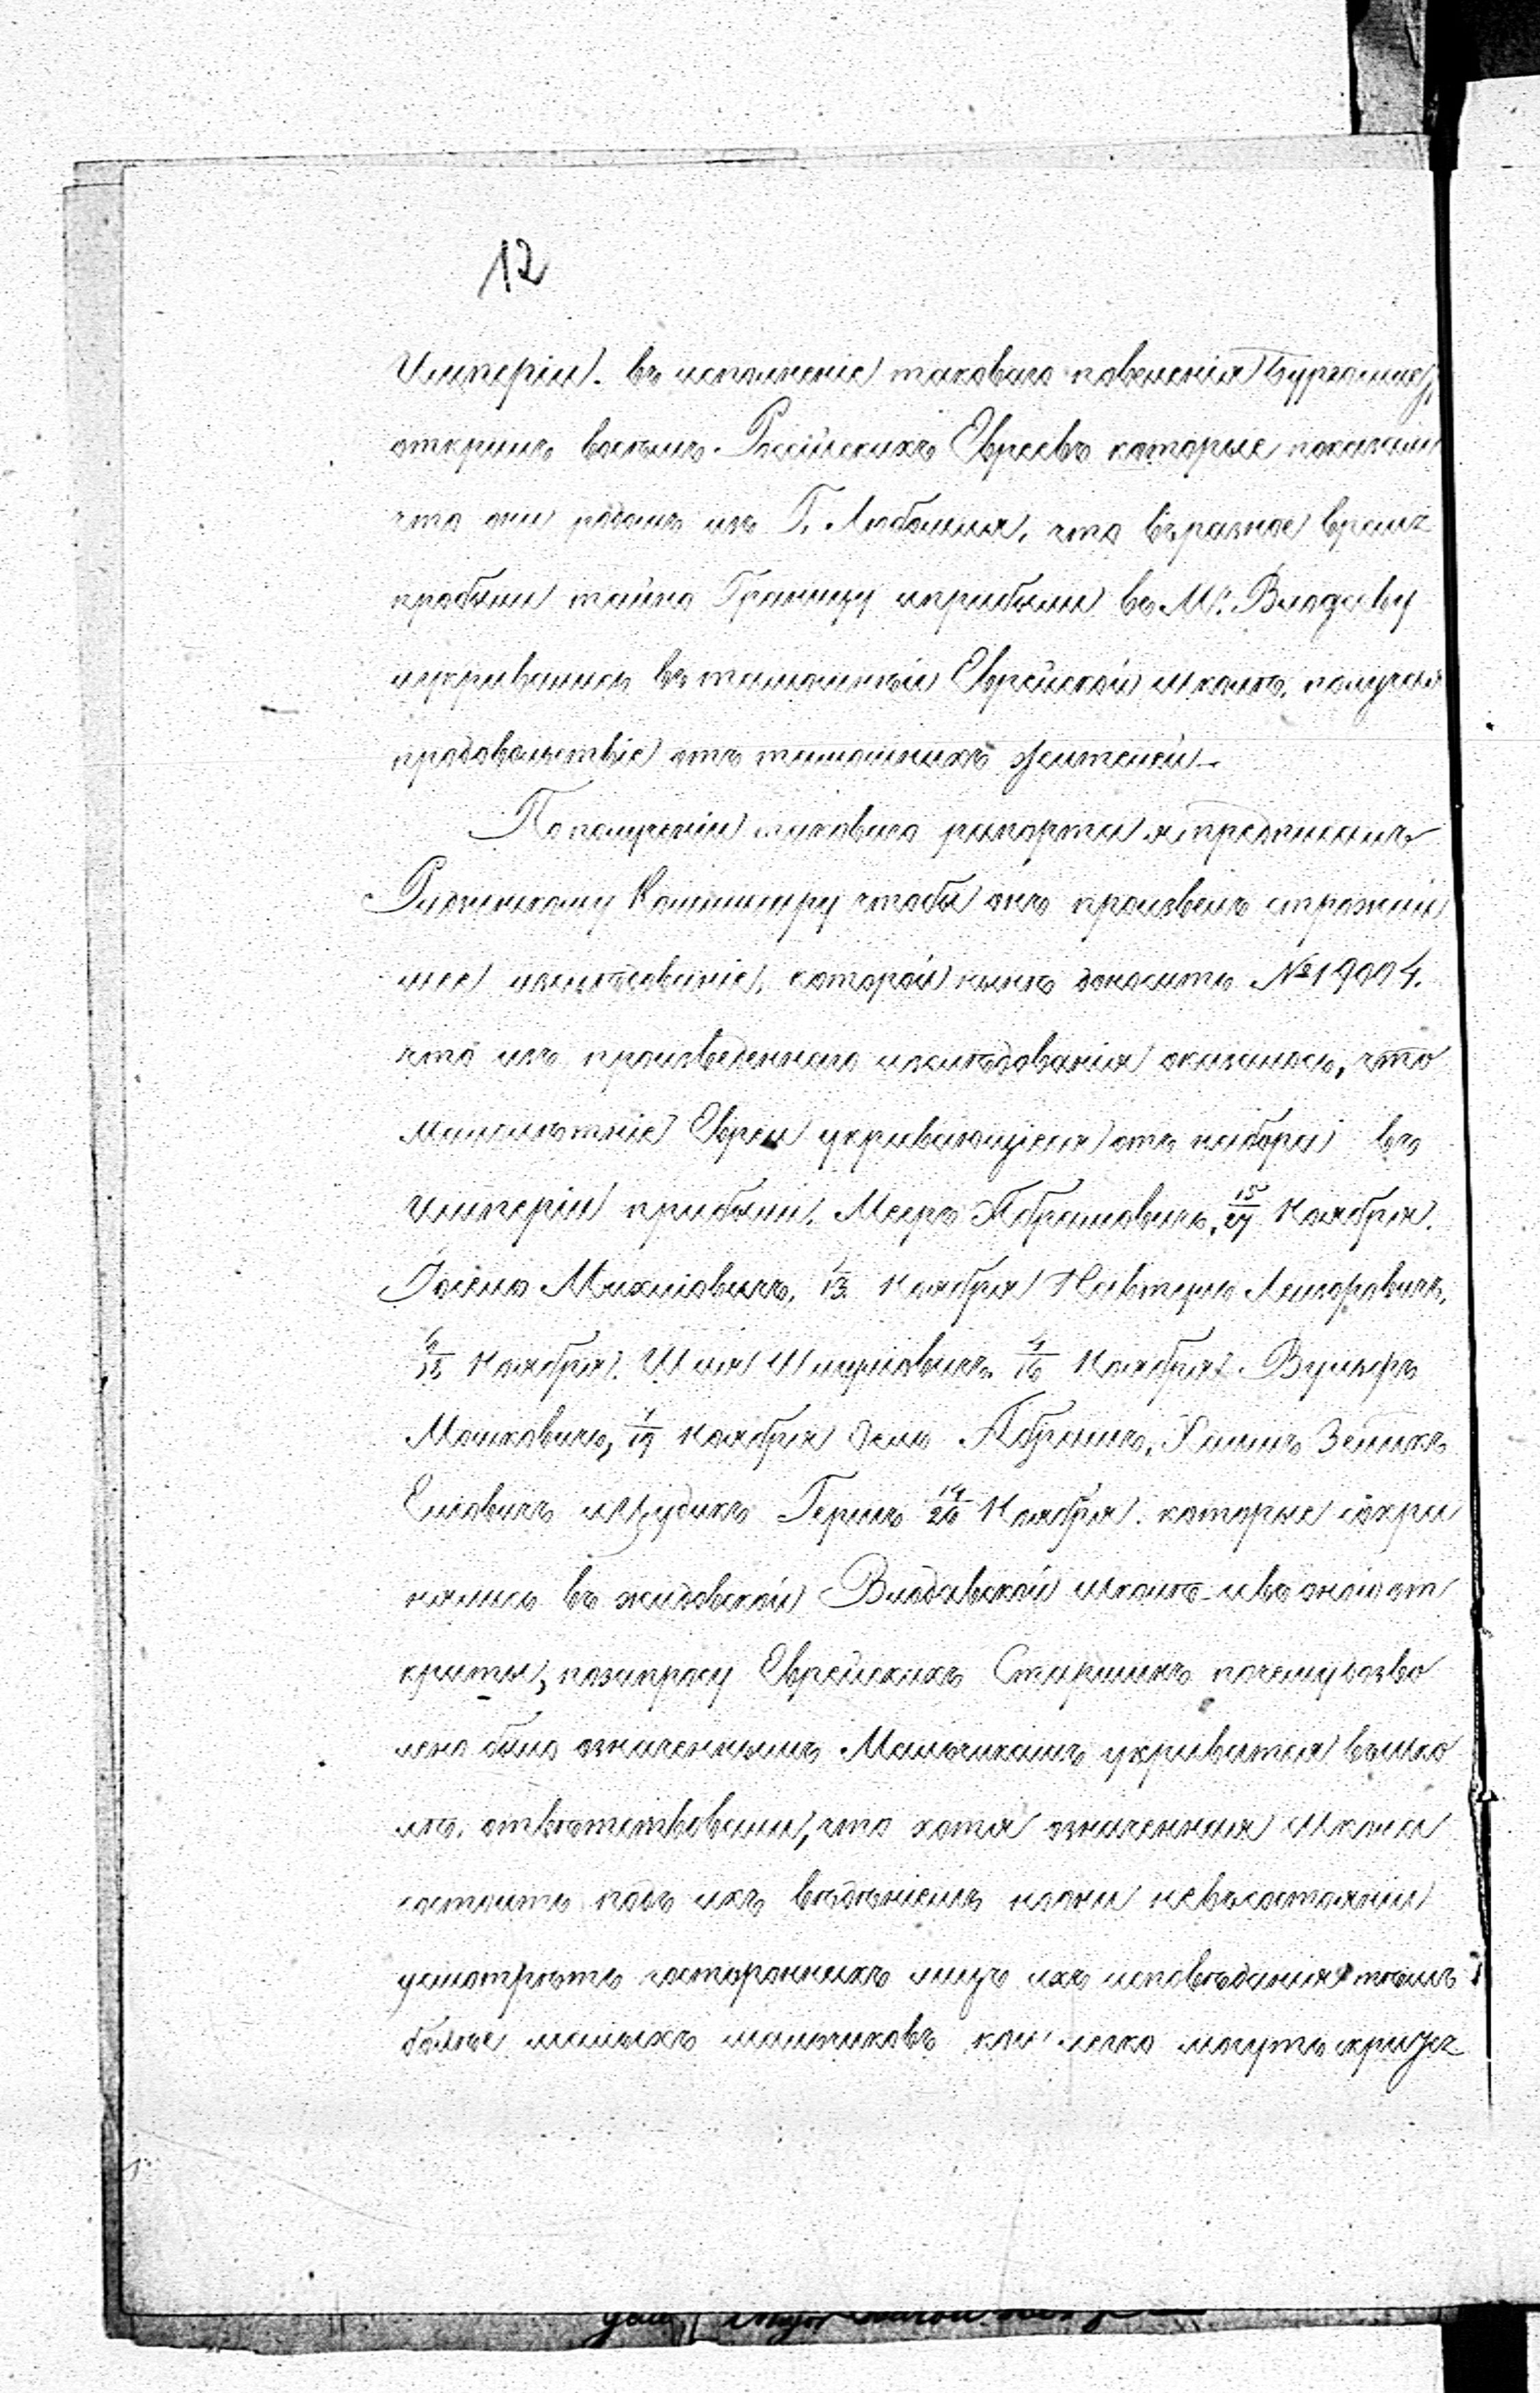 12
Имперіи. въ исполненіе таковаго повеленія Бургомистръ
открилъ восемь Россійскихъ Евреевъ которые показали
что они родомъ изъ Г. Любомля, что въ разное время
пробыли тайно Границу и прибыли въ М. Влодаву
и укривались въ тамошней Еврейской школѣ, получая
продовольствіе отъ тамошнихъ жителей.
По полученіи таковаго рапорта я предписалъ
Радинскому Коммисару чтобы онъ произвелъ строжай
шее изслѣдованіе, которой нынѣ доноситъ № 19004.
что изъ произведеннаго изслѣдованія оказалось, что
малолѣтніе Евреи укривающіеся отъ набора въ
Имперіи прибыли. Мееръ Абрамовичъ, 15/27 Ноября.
Іосель Михиловичъ, 1/13 Ноября Нафтула Лейзоровичъ,
Ноября. Шлія Шмулиовичъ 4/16 Ноября. Вульфъ
Мошковичъ, 7/19 Ноября Іель Абрамъ, Хаимъ Зеликъ
Елiовичъ и Іудикъ Гершъ 14/26 Ноября. которые сохра
нялись въ жидовской Влодавской школѣ и въ оной от
криты, по запросу Еврейскихъ Старшинъ почему позво
лено было означеннымъ Мальчикамъ укриватся въ шко
лѣ, отвѣтствовали, что хотя означенная Школа
состоитъ подъ ихъ вѣдѣніемъ но они невъсостояніи
усмотрѣть посторонныхъ лицъ ихъ исповѣданія тѣмъ
болѣе малыхъ мальчиковъ кои легко могутъ